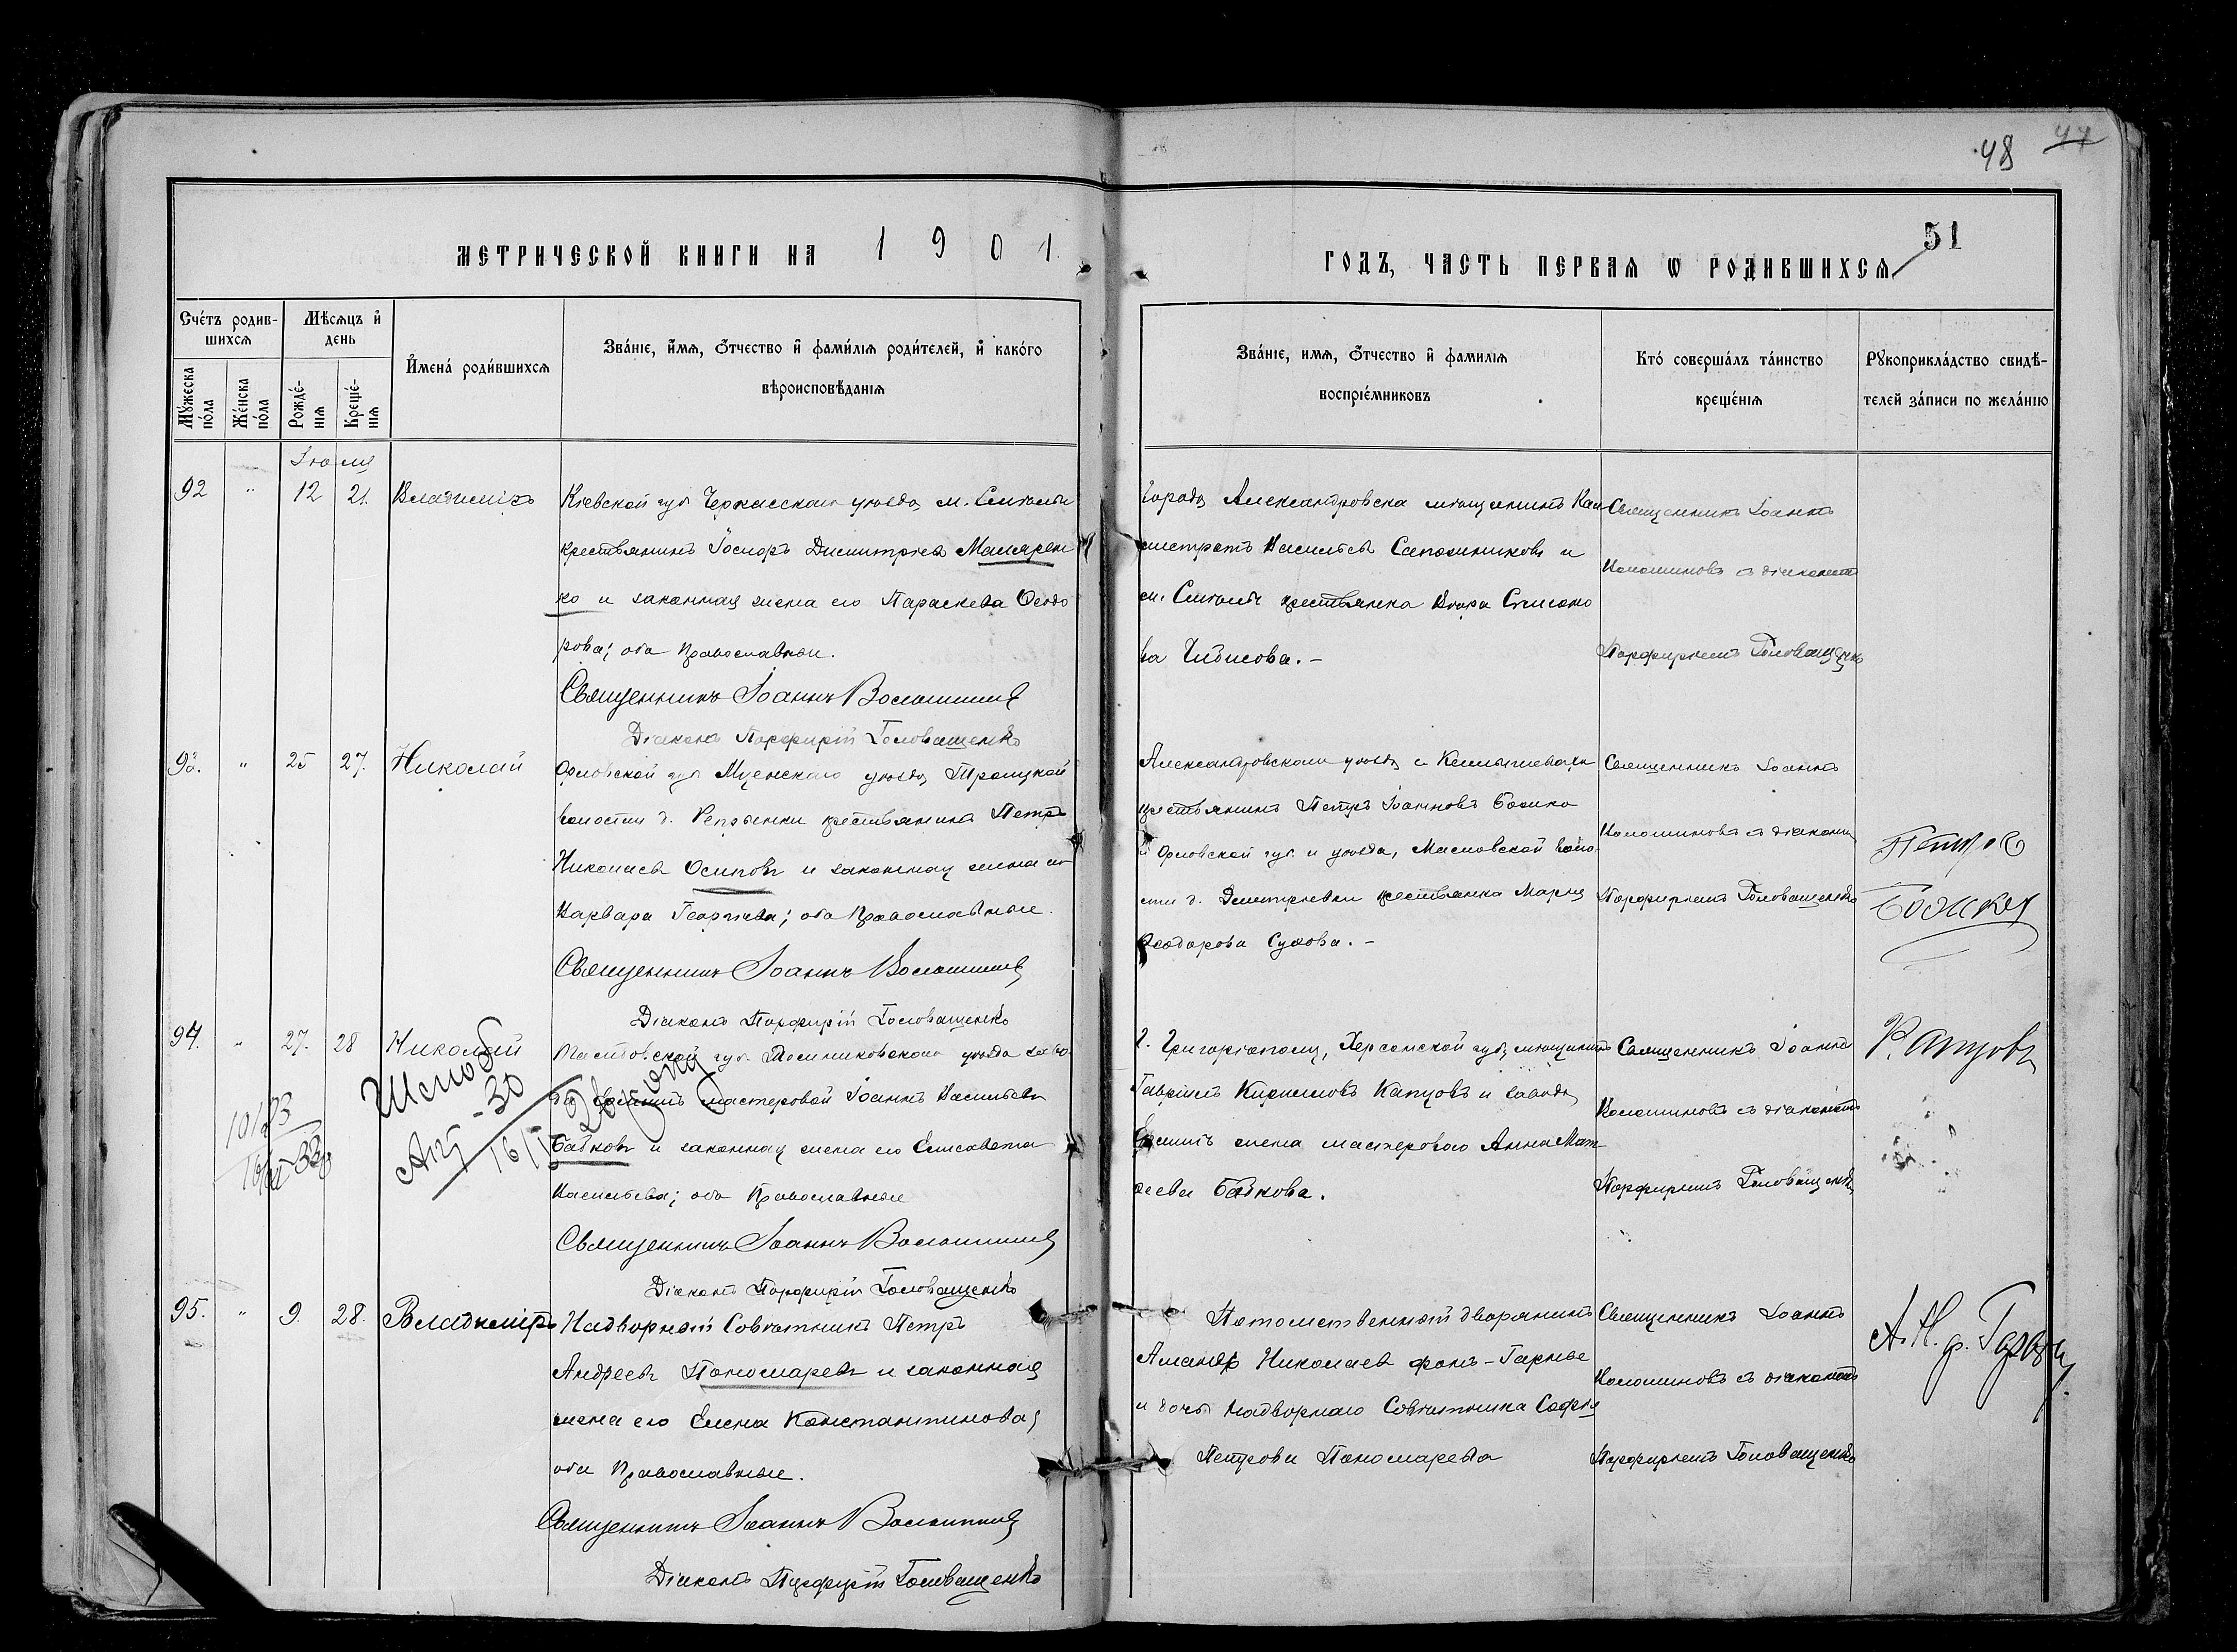 48 47
МЕТРИЧЕСКОЙ КНИГИ НА 1901
ГОДЪ, ЧАСТЬ ПЕРВАЯ Ѡ РОДИВШИХСЯ
51
Счéтъ родив-
шихся
Мѣсяцъ и҆
день
Мꙋжеска
пóла
Жéнска
пóла
Рождé-
нiя
Крещé-
нiя
И҆менá родившихся
Звáнiе, и҆мя, ѻтчество и҆ фамилiя родителей, и҆ какóго
вѣроисповѣданiя
Звáнiе, имя, ѻтчество и҆ фамилiя
воспрiéмниковъ
Ктó совершáлъ тáинство
крещéнiя
Рꙋкоприклáдство свидѣ-
телей зáписи по желáнiю
Іюля
92 " 12 21. Владиміръ
Кіевской губ Черкасскаго уѣзда, м. Смѣлы
крестьянинъ Іосифъ Димитріевъ Маларен
ко и законная жена его Параскева Ѳеодо
рова; оба Православные.
Священникъ Іоаннъ Волошиновъ
Діаконъ Порфирій Головащенко
города Александровска мѣщанинъ Кали
стратъ Васильевъ Сапожниковъ и
м. Смѣлы крестьянка Вѣра Симоно
ва Чибисова. –
Священникъ Іоаннъ
Волошиновъ съ діакономъ
Порфиріемъ Головащенко
93. " 25 27. Николай
Орловской губ Мценскаго уѣзда, Троицкой
волости д. крестьянинъ Петръ
Николаевъ Осиповъ и законная жена его
Варвара Георгіева; оба Православные.
Священникъ Іоаннъ Волошиновъ
Діаконъ Порфирій Головащенко
Александровскаго уѣзда с.
крестьянинъ Петръ Іоанновъ Божко
и Орловской губ. и уѣзда, Масловской воло
сти д. Димитріевки крестьянка Марія
Ѳеодорова Сухова. –
Священникъ Іоаннъ
Волошиновъ съ діакономъ
Порфиріемъ Головащенко
Петръ
Божко
94. " 27. 28 Николай
губ. уѣзда заво
да мастеровой Іоаннъ Васильевъ
Бабковъ и законная жена его Елисавета
Васильева; оба Православные
Священникъ Іоаннъ Волошиновъ
Діаконъ Порфирій Головащенко
г. Григоріополя, Херсонской губ, мѣщанинъ
Гавріилъ Кирилловъ Капцовъ и завода
жена мастерового Анна Мат
ѳеева Бабкова.
Священникъ Іоаннъ
Волошиновъ съ діакономъ
Порфиріемъ Головащенко
95. " 9. 28. Владиміръ
Надворный Совѣтникъ Петръ
Андреевъ Пономаревъ и законная
жена его Елена Константинова;
оба Православные.
Священникъ Іоаннъ Волошиновъ
Діаконъ Порфирій Головащенко
Потомственный дворянинъ
Николаевъ фонъ-Гарные
и дочь Надворнаго Совѣтника Софія
Петрова Пономарева
Священникъ Іоаннъ
Волошиновъ съ діакономъ
Порфиріемъ Головащенко